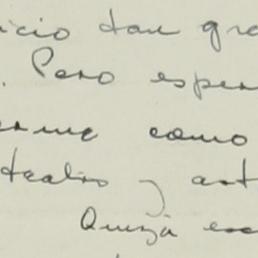 icio tan gra
. Pero espe
erme como
teatro y art
Quizá es